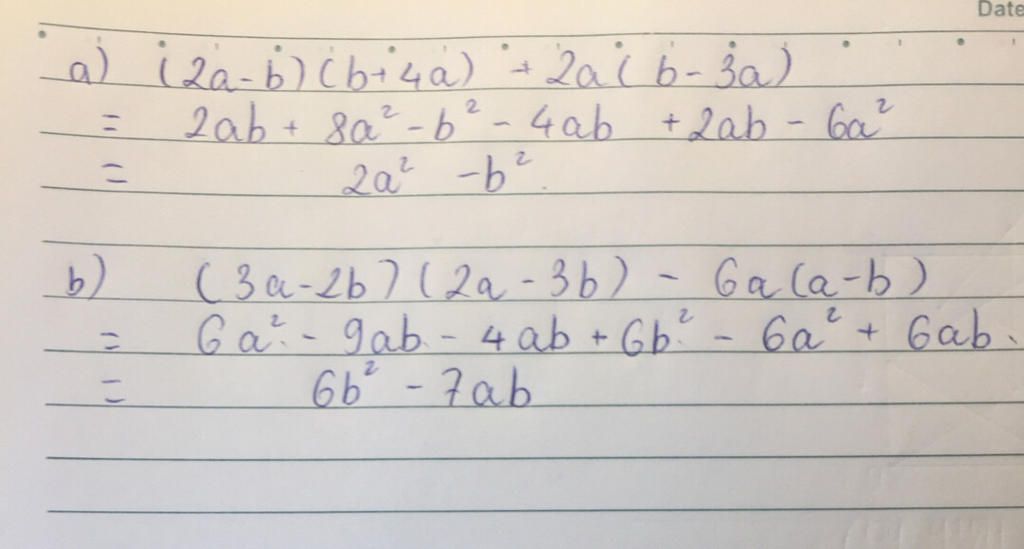 Date
a) (2a-b)(b+4a) + 2a(b-3a)
= 2ab + 8a² - b² - 4ab + 2ab - 6a²
= 2a² - b².
b) (3a-2b)(2a-3b) - 6a(a-b)
= 6a² - 9ab - 4ab + 6b² - 6a² + 6ab.
= 6b² - 7ab